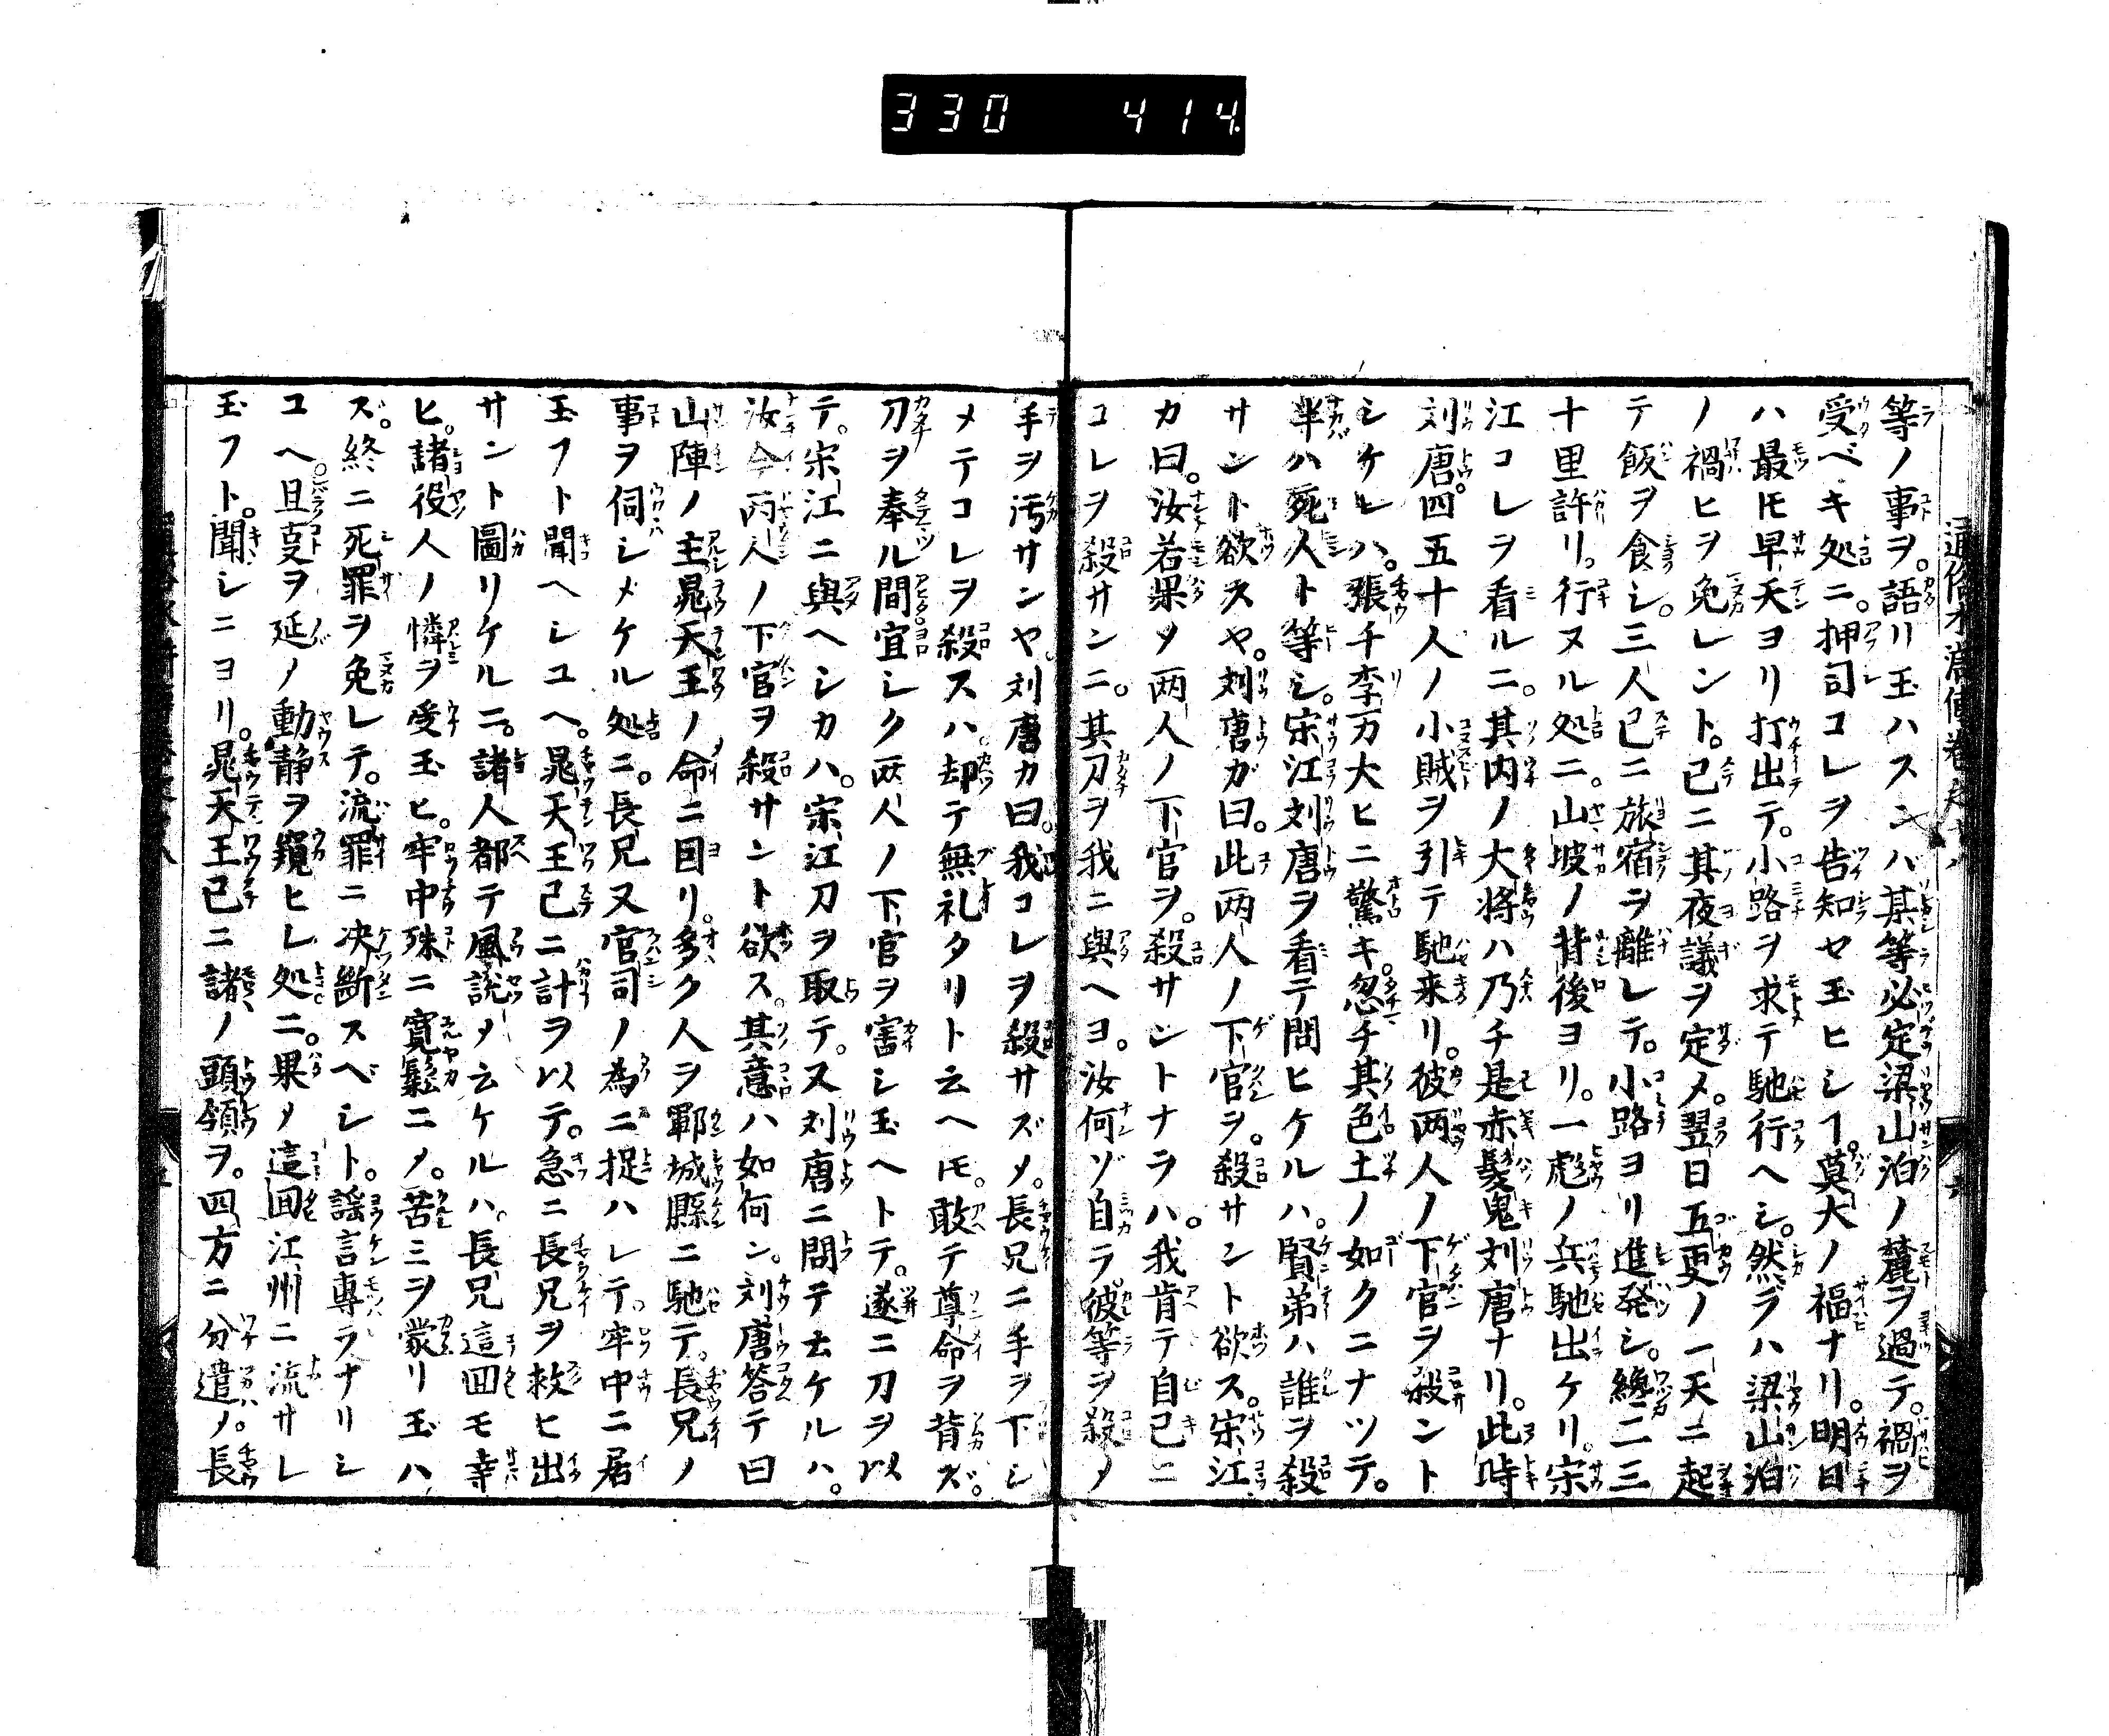 330 414
等ノ事ヲ。語リ玉ハスンバ某等必定梁山泊ノ麓ヲ過テ。禍ヲ
受ベキ処ニ。押司コレヲ告知セ玉ヒシヿ。莫大ノ福ナリ。明日
ハ最モ早天ヨリ打出テ。小路ヲ求テ馳行ヘシ。然ラハ梁山泊
ノ禍ヒヲ免レント。已ニ其夜議ヲ定メ。翌日五更ノ一天ニ起
テ飯ヲ食シ。三人已ニ旅宿ヲ離レテ。小路ヨリ進発シ。纔二三
十里許リ。行ヌル処ニ。山坡ノ背後ヨリ。一彪ノ兵馳出ケリ。宋
江コレヲ看ルニ。其内ノ大将ハ乃チ是赤髪鬼刘唐ナリ。此時
刘唐。四五十人ノ小賊ヲ引テ馳来リ。彼两人ノ下官ヲ殺ント
シケレハ。張千李万大ヒニ驚キ。忽チ其色土ノ如クニナツテ。
半ハ死人ト等シ。宋江刘唐ヲ看テ問ヒケルハ。賢弟ハ誰ヲ殺
サント欲スヤ。刘唐ガ曰。此两人ノ下官ヲ。殺サント欲ス。宋江
カ曰。汝若果メ两人ノ下官ヲ。殺サントナラハ。我肯テ自己ニ
コレヲ殺サンニ。其刀ヲ我ニ與ヘヨ。汝何ゾ自ラ彼等ヲ殺メ
手ヲ汚サンヤ。刘唐カ曰。我コレヲ殺サズメ。長兄ニ手ヲ下シ
メテコレヲ殺スハ。却テ無礼タリト云ヘ𪜈。敢テ尊命ヲ背ズ。
刀ヲ奉ル間宜シク两人ノ下官ヲ害シ玉ヘトテ。遂ニ刀ヲ以
テ。宋江ニ與ヘシカハ。宋江刀ヲ取テ。又刘唐ニ問テ云ケルハ。
汝今两人ノ下官ヲ殺サント欲ス。其意ハ如何ン。刘唐答テ曰
山陣ノ主晁天王ノ命ニ因リ。多ク人ヲ鄆城縣ニ馳テ。長兄ノ
事ヲ伺シメケル処ニ。長兄又官司ノ為ニ捉ハレテ。牢中ニ居
玉フト聞ヘシユヘ。晁天王已ニ計ヲ以テ。急ニ長兄ヲ救ヒ出
サント圖リケルニ。諸人都テ風説メ云ケルハ。長兄這回モ幸
ヒ。諸役人ノ憐ヲ受玉ヒ。牢中殊ニ寛鬆ニメ。苦ミヲ蒙リ玉ハ
ズ。終ニ死罪ヲ免レテ。流罪ニ决断スベシト。謡言專ラナリシ
ユヘ。且叓ヲ延ノ動静ヲ窺ヒシ処ニ。果メ這回江州ニ流サレ
玉フト。聞シニヨリ。晁天王已ニ諸ノ頭領ヲ。四方ニ分遣ノ。長